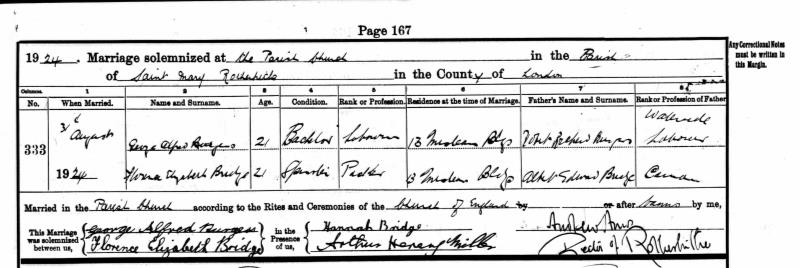 Page 167
1924. Marriage solemnized at the Parish Church in the Parish
of Saint Mary Rotherhithe in the County of London
Any Correctional Notes must be written in this Margin.
Columns. 1 2 3 4 5 6 7 8
No. When Married. Name and Surname. Age. Condition. Rank or Profession. Residence at the time of Marriage. Father's Name and Surname. Rank or Profession of Father
333 3d August George Alfred Burgess 21 Bachelor Labourer 13 Bldgs Burgess Waterside Labourer
1924 Florence Elizabeth Bridge 21 Spinster Packer 13 Bldgs Albert Edward Bridge Carman
Married in the Parish Church according to the Rites and Ceremonies of the Church of England by or after banns by me,
This Marriage was solemnized between us, George Alfred Burgess
Florence Elizabeth Bridge
in the Presence of us, Hannah Bridge
Arthur Henry Miller
Andrew
Rector of Rotherhithe